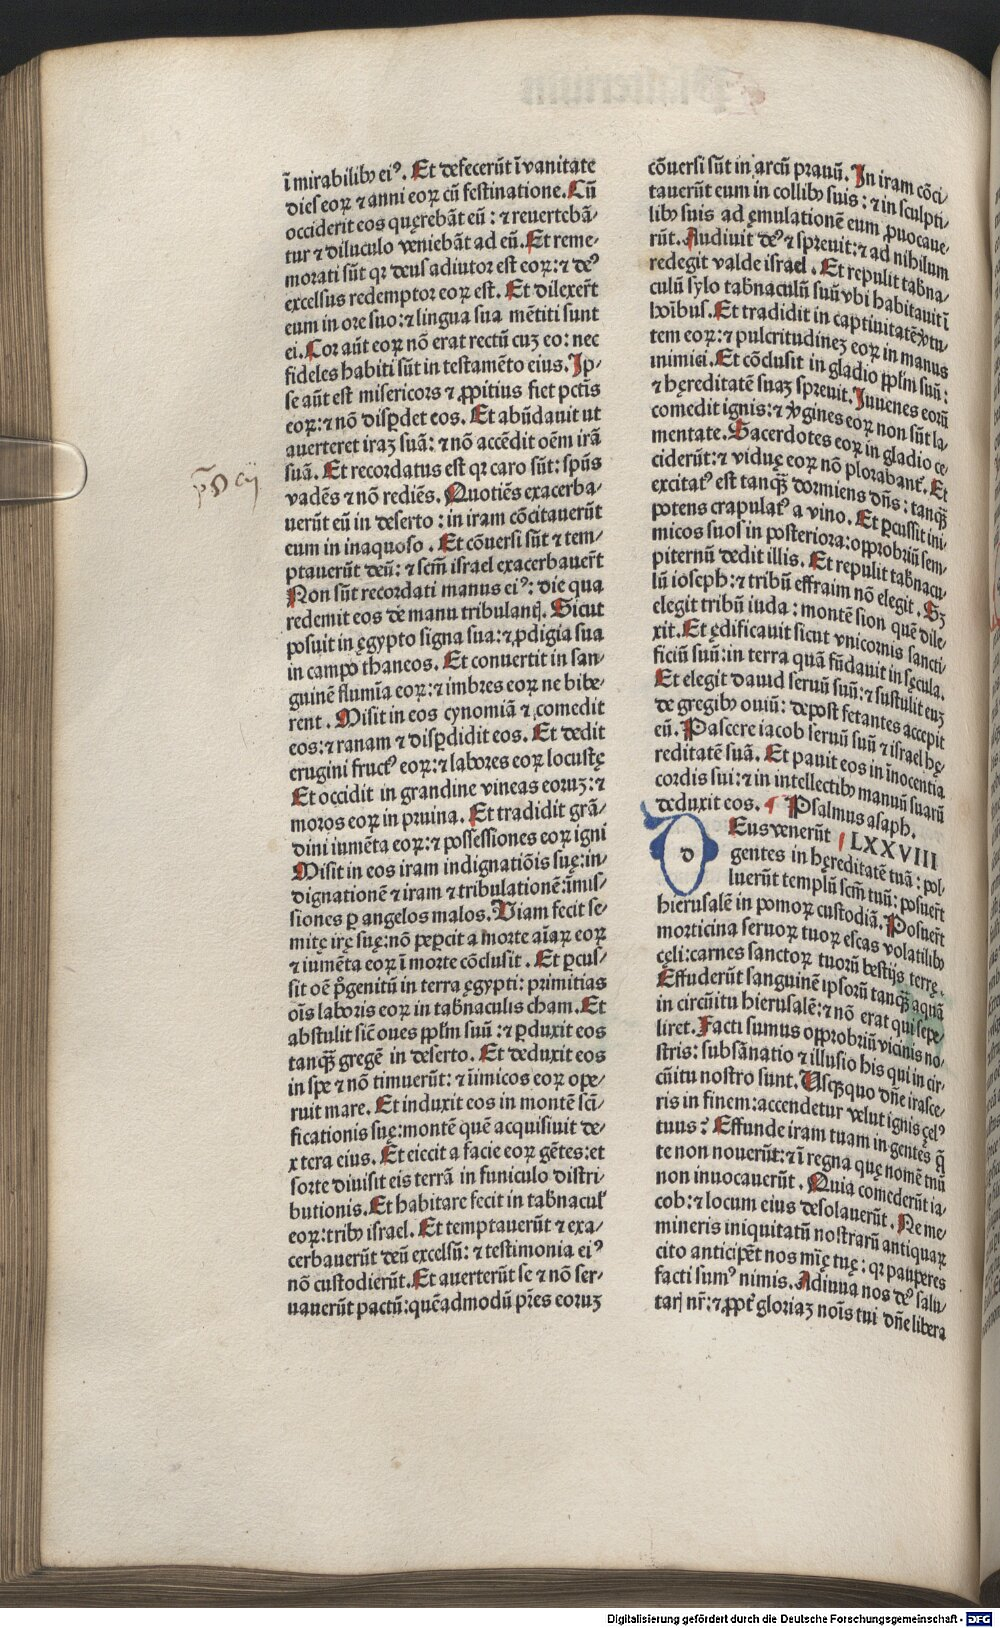 ī mirabilibꝫ eiꝰ. Et defecerūt ī vanitate
dies eoꝝ ⁊ anni eoꝝ cū festinatione. Cū
occiderit eos quęrebāt eū : ⁊ reuertebā⸗
tur ⁊ diluculo veniebāt ad eū. Et reme⸗
morati sūt qꝛ deus adiutor est eoꝝ: ⁊ deꝰ
excelsus redemptor eoꝝ est. Et dilexer̄t
eum in ore suo: ⁊ lingua sua mētiti sunt
ei. Cor aūt eoꝝ nō erat rectū cuꝫ eo: nec
fideles habiti sūt in testamēto eius. Ip⸗
se aūt est misericors ⁊ ꝓpitius fiet pctīs
eoꝝ: ⁊ nō disꝑdet eos. Et abūdauit ut
auerteret iraꝫ suā: ⁊ nō accēdit oēm irā
suā. Et recordatus est qꝛ caro sūt: spūs
vadēs ⁊ nō rediēs. Quotiēs exacerba⸗
uerūt eū in deserto : in iram cōcitauerūt
eum in inaquoso . Et cōuersi sūt ⁊ tem⸗
ptauerūt deū: ⁊ scm̄ israel exacerbauer̄t
Non sūt recordati manus eiꝰ: die qua
redemit eos de manu tribulantꝭ. Sicut
posuit in ęgypto signa sua: ⁊ ꝓdigia sua
in campo thaneos. Et conuertit in san⸗
guinē flumīa eoꝝ: ⁊ imbres eoꝝ ne bibe⸗
rent . Misit in eos cynomiā ⁊ comedit
eos: ⁊ ranam ⁊ disꝑdidit eos. Et dedit
erugini fructꝰ eoꝝ: ⁊ labores eoꝝ locustę
Et occidit in grandine vineas eoruꝫ: ⁊
moros eoꝝ in pruina. Et tradidit grā⸗
dini iumēta eoꝝ: ⁊ possessiones eoꝝ igni
Misit in eos iram indignatiōis suę: in⸗
dignationē ⁊ iram ⁊ tribulationē: īmis⸗
siones ꝑ angelos malos. Viam fecit se⸗
mitę irę suę: nō peꝑcit a morte aīaꝝ eoꝝ
⁊ iumēta eoꝝ ī morte cōclusit . Et ꝑcus⸗
sit oē pͥgenitū in terra ęgypti: primitias
oīs laboris eoꝝ in tab̄naculis cham. Et
abstulit sic̄ oues pp̄lm suū : ⁊ ꝑduxit eos
tanqꝫ̄ gregē in deserto. Et deduxit eos
in spe ⁊ nō timuerūt: ⁊ īimicos eoꝝ ope⸗
ruit mare. Et induxit eos in montē scī⸗
ficationis suę: montē quē acquisiuit de⸗
xtera eius. Et eiecit a facie eoꝝ gētes: et
sorte diuisit eis terrā in funiculo distri⸗
butionis. Et habitare fecit in tab̄naculꝭ
eoꝝ: tribꝫ israel. Et temptauerūt ⁊ exa⸗
cerbauerūt deū excelsū: ⁊ testimonia eiꝰ
nō custodierūt. Et auerterūt se ⁊ nō ser⸗
uauerūt pactū: quēadmodū pr̄es eoruꝫ
cōuersi sūt in arcū prauū. In iram cōci⸗
tauerūt eum in collibꝫ suis : ⁊ in sculpti⸗
libꝫ suis ad ęmulationē eum ꝓuocaue⸗
rūt. Audiuit deꝰ ⁊ spreuit: ⁊ ad nihilum
redegit valde israel . Et repulit tab̄na⸗
culū sylo tab̄naculū suū vbi habitauit ī
hoībus. Et tradidit in captiuitatē v̓tu⸗
tem eoꝝ: ⁊ pulcritudineꝫ eoꝝ in manus
inimici. Et cōclusit in gladio pp̄lm suū :
⁊ hęreditatē suaꝫ spreuit. Iuuenes eorū
comedit ignis: ⁊ v̓gines eoꝝ non sūt la⸗
mentate. Sacerdotes eoꝝ in gladio ce⸗
ciderūt: ⁊ viduę eoꝝ nō plorabant᷑. Et
excitatꝰ est tanqꝫ̄ dormiens dn̄s : tanqꝫ̄
potens crapulatꝰ a vino . Et ꝑcussit ini⸗
micos suos in posteriora: opprobriū sem⸗
piternū dedit illis. Et repulit tab̄nacu⸗
lū ioseph: ⁊ tribū effraim nō elegit . Sꝫ
elegit tribū iuda : montē sion quē dile⸗
xit. Et ędificauit sicut vnicornis sancti⸗
ficiū suū: in terra quā fūdauit in sęcula.
Et elegit dauid seruū suū : ⁊ sustulit euꝫ
de gregibꝫ ouiū: de post fetantes accepit
eū. Pascere iacob seruū suū ⁊ israel hę⸗
reditatē suā. Et pauit eos in īnocentia
cordis sui: ⁊ in intellectibꝫ manuū suarū
deduxit eos. Psalmus asaph.
Deus venerūt LXXVIII
gentes in hęreditatē tuā : pol⸗
luerūt templū scm̄ tuū: posuer̄t
hierusalē in pomoꝝ custodiā. Posuer̄t
morticina seruoꝝ tuoꝝ escas volatilibꝫ
cęli: carnes sanctoꝝ tuorū bestijs terrę.
Effuderūt sanguinē ipsorū tanqꝫ̄ aquā
in circūitu hierusalē: ⁊ nō erat qui sepe⸗
liret. Facti sumus opprobriū vicinis no⸗
stris: subsānatio ⁊ illusio his qui in cir⸗
cūitu nostro sunt. Usqꝫquo dn̄e irasce⸗
ris in finem: accendetur velut ignis çelꝰ
tuus? Effunde iram tuam in gentes q̄
te non nouerūt: ⁊ ī regna quę nomē tuū
non inuocauerūt . Quia comederūt ia⸗
cob: ⁊ locum eius desolauerūt. Ne me⸗
mineris iniquitatū nostrarū antiquaꝝ
cito anticipēt nos mīę tuę : qꝛ pauperes
facti sumꝰ nimis. Adiuua nos deꝰ salu⸗
tarꝭ nr̄: ⁊ ꝓpt᷑ gloriaꝫ noīs tui dn̄e libera
Digitalisierung gefördert durch die Deutsche Forschungsgemeinschaft - DFG